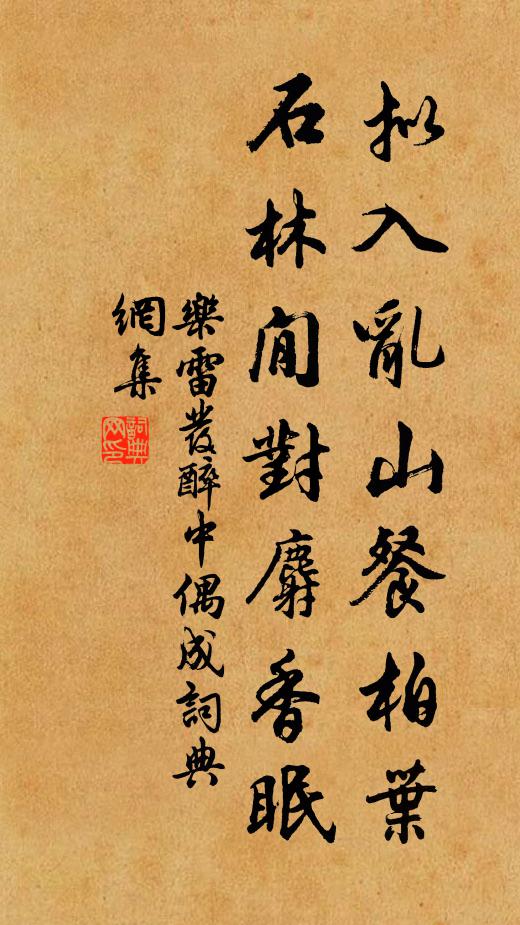 拟入亂山餐柏葉
石林閒對麝香眠
樂雷發醉中偶成詞典
網集
詞典
网印